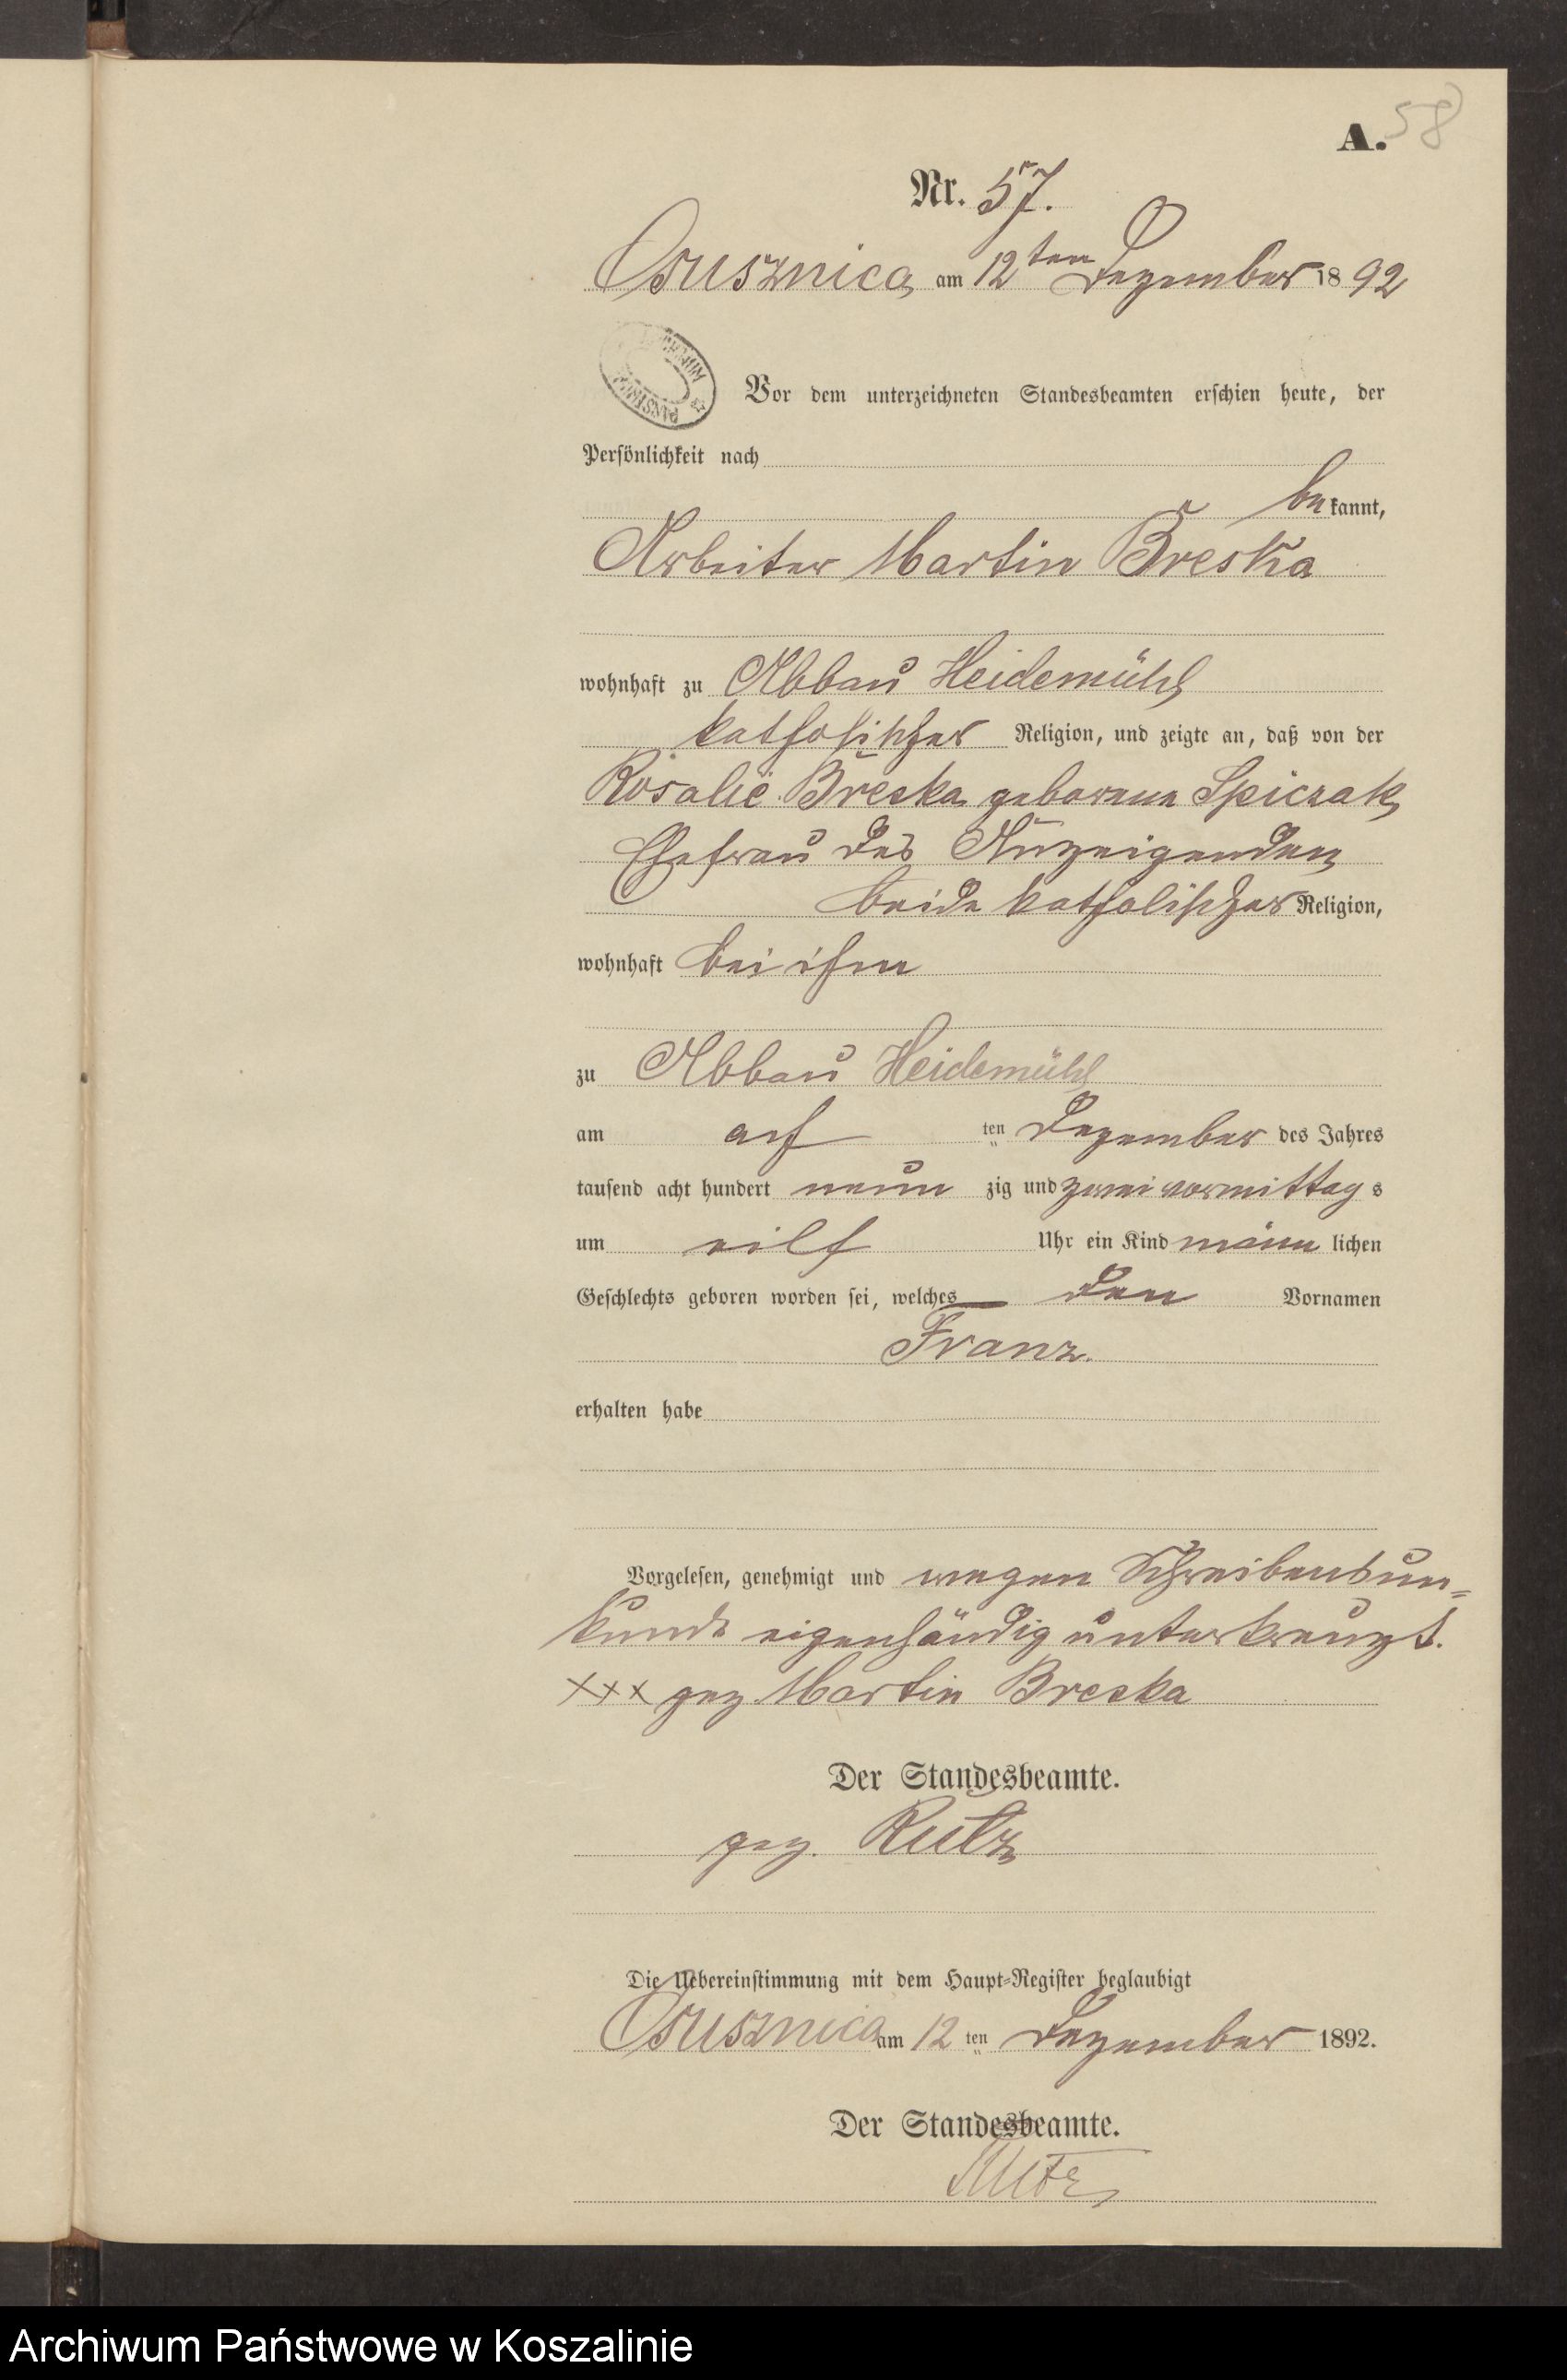 A. 58
Nr. 57.
Osusznica am 12ten Dezember 1892
ARCHIWUM
Vor dem unterzeichneten Standesbeamten erschien heute, der
Persönlichkeit nach
be kannt,
Arbeiter Martin Breska
wohnhaft zu Abbau Heidemühl
katholischer Religion, und zeigte an, daß von der
Rosalie Breska geborene Spiczak
Ehefrau des Anzeigenden
beide katholischer Religion,
wohnhaft bei ihm
zu Abbau Heidemühl
am acht ten Dezember des Jahres
tausend acht hundert neun zig und zwei vormittag s
um eilf Uhr ein Kind männ lichen
Geschlechts geboren worden sei, welches den Vornamen
Franz.
erhalten habe
Vorgelesen, genehmigt und wegen Schreibensun-
kunde eigenhändig unterkreuzt.
XXX gez Martin Breska
Der Standesbeamte.
gez. Rutz
Die Uebereinstimmung mit dem Haupt-Register beglaubigt
Osusznica am 12 ten Dezember 1892.
Der Standesbeamte.
Rutz
Archiwum Państwowe w Koszalinie